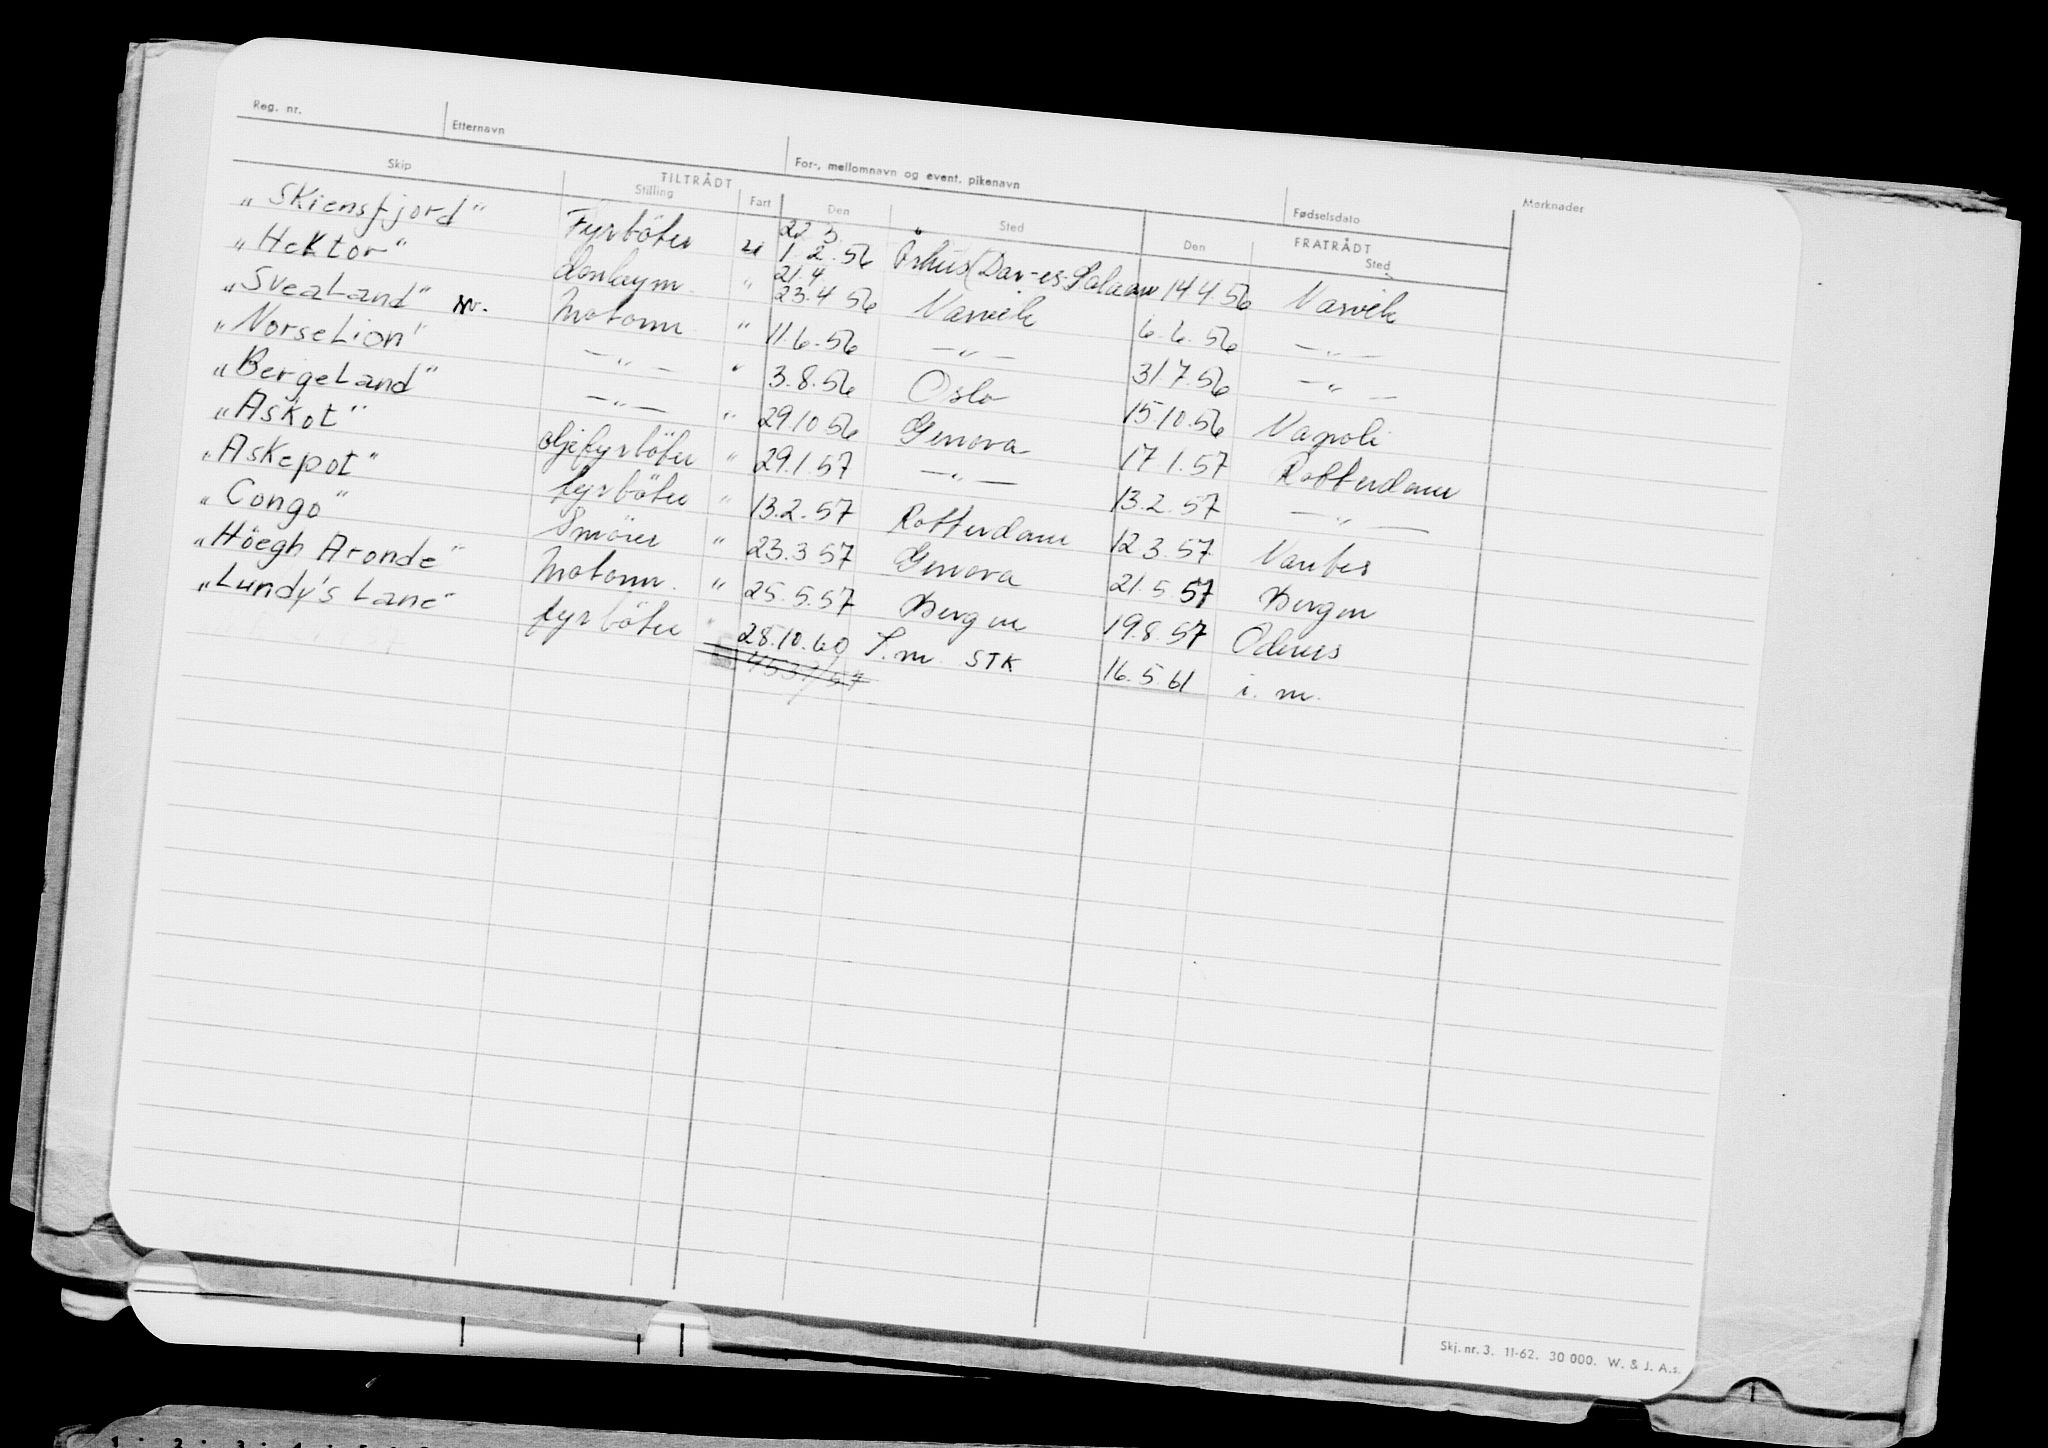 Reg. nr. Etternavn For-, mellomnavn og event. pikenavn Fødselsdato Merknader
Skip TILTRÅDT FRATRÅDT
Stilling Fart Den Sted Den Sted
22 3. "
"Skiensfjord" Fyrböter u 1.2.56 Århus (Dar-es-Salaam 14 4.56 Narvik
21.4
"Hektor" donkeym. " 23.4 56 Narvik 6.6.56 — " —
"Svealand" Motorm " 11.6.56 — " — 31.7.56 — " —
"Norse Lion" — " — " 3.8.56 Oslo 15.10.56 Napoli
"Bergeland" — " — " 29.10 56 Genova 17 1.57 Rotterdam
"Askot" oljefyrböter " 29.1.57 — " — 13.2.57 — " —
"Askepot" fyrböter " 13.2.57 Rotterdam 12 3.57
"Congo" Smörer " 23.3 57 Genova 21.5 57 Bergen
"Höegh Aronde" Motorm. " 25.5.57 Bergen 19.8.57
"Lundy's Lane" fyrböter " 28.10.60 I.m. STK 16.5.61 i. m.
4537/57
Skj. nr. 3. 11-62. 30 000. W. & J. A.s.